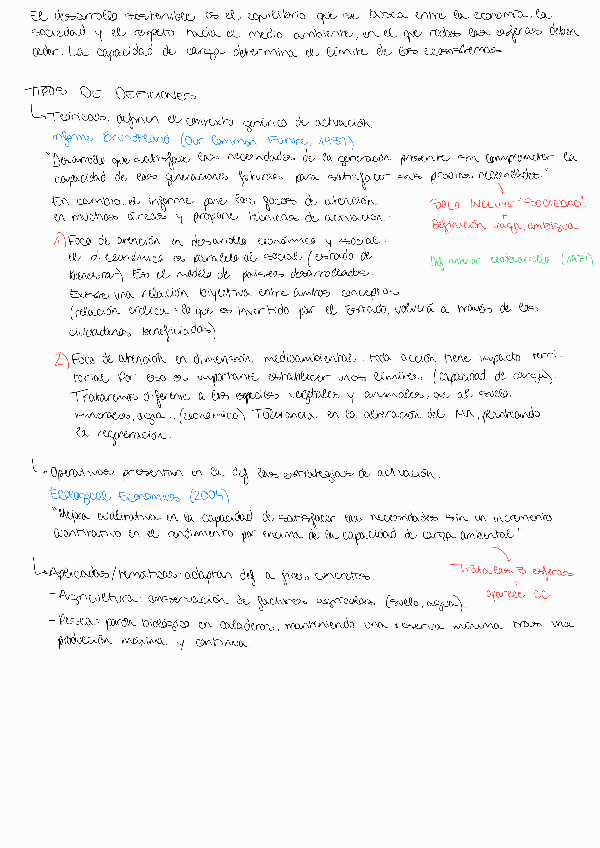 El desarrollo sostenible es el equilibrio que se busca entre la economía, la
sociedad y el respeto hacia el medio ambiente, en el que todas las esferas deben
ceder. La capacidad de carga determina el límite de los ecosistemas.
TIPOS DE DEFICIONES
Teóricas: definen el contexto genérico de actuación.
Informe Brundtland (Our Common Future, 1987)
"Desarrollo que satisface las necesidades de la generación presente sin comprometer la
capacidad de las generaciones futuras para satisfacer sus propias necesidades."
En cambio, el informe pone los focos de atención
en muchas áreas y propone técnicas de actuación:
SOLO INCLUYE "SOCIEDAD".
+
Definición vaga, ambigua.
1) Foco de atención en desarrollo económico y social:
el d. económico es paralelo al social (estado de
bienestar). Es el modelo de países desarrollados.
Existe una relación biyectiva entre ambos conceptos
(relación cíclica: lo que es invertido por el Estado, volverá a través de los
ciudadanos beneficiados)
Def anterior ecodesarrollo (1971)
2) Foco de atención en dimensión medioambiental: toda acción tiene impacto terri-
torial. Por eso es importante establecer unos límites (capacidad de carga).
Trataremos diferente a las especies vegetales y animales, que al suelo,
minerales, agua... (económico). Tolerancia en la alteración del MA, planteando
la regeneración.
- Operativas: presentan en la def las estrategias de actuación.
Ecological Economics (2004)
"Mejora cualitativa en la capacidad de satisfacer las necesidades sin un incremento
cuantitativo en el rendimiento por encima de la capacidad de carga ambiental."
Trata las 3 esferas
aparece CC
Aplicadas/temáticas: adaptan def a fines concretos.
- Agricultura: conservación de factores agrícolas (suelo, agua).
- Pesca: parón biológico en caladeros, manteniendo una reserva mínima para una
producción máxima y continua